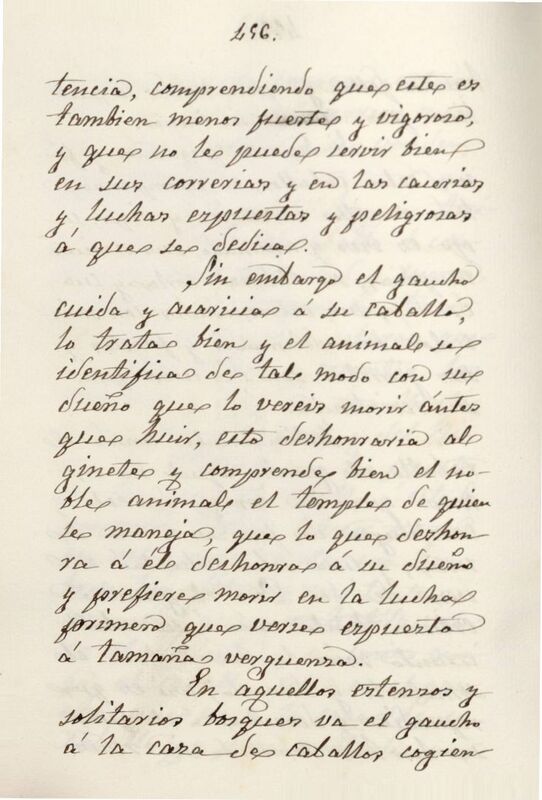 456.
tencia, comprendiendo que este es
tambien menos fuerte y vigoroso,
y que no le puede servir bien
en sus correrias y en las cacerias
y luchas espuestas y peligrosas
á que se dedica.
Sin embargo el gaucho
cuida y acaricia á su caballo,
lo trata bien y el animal se
identifica de tal modo con su
dueño que lo vereis morir ántes
que huir, esto deshonraria al
ginete y comprende bien el no-
ble animal el temple de quien
le maneja, que lo que deshon
ra á él deshonra á su dueño
y prefiere morir en la lucha
primero que verse espuesto
á tamaña verguenza.
En aquellos estensos y
solitarios bosques va el gaucho
á la caza de caballos cogien